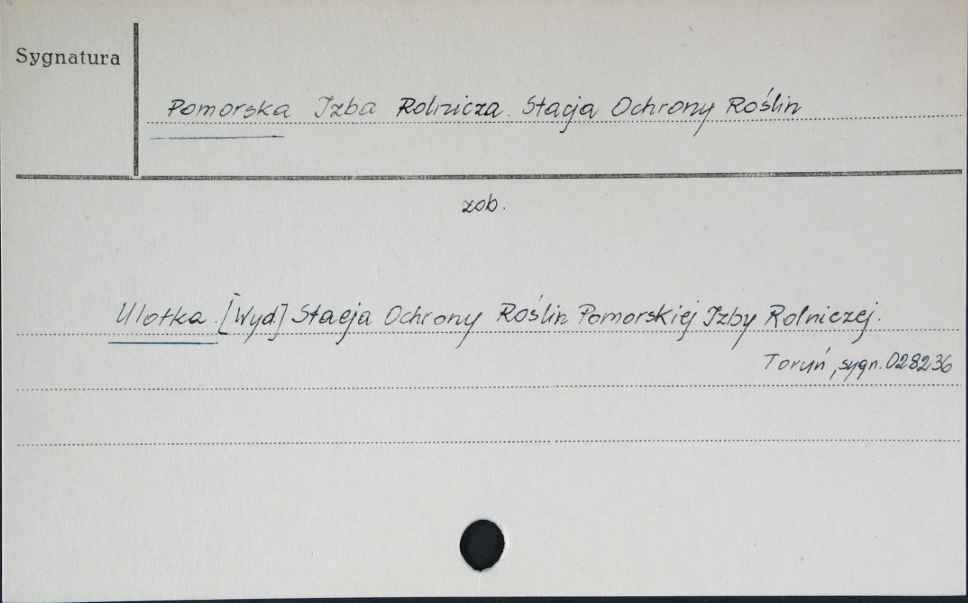 Sygnatura
Pomorska Izba Rolnicza. Stacja Ochrony Roślin
zob.
Ulotka. [Wyd] Stacja Ochrony Roślin Pomorskiej Izby Rolniczej.
Toruń, sygn. 028236